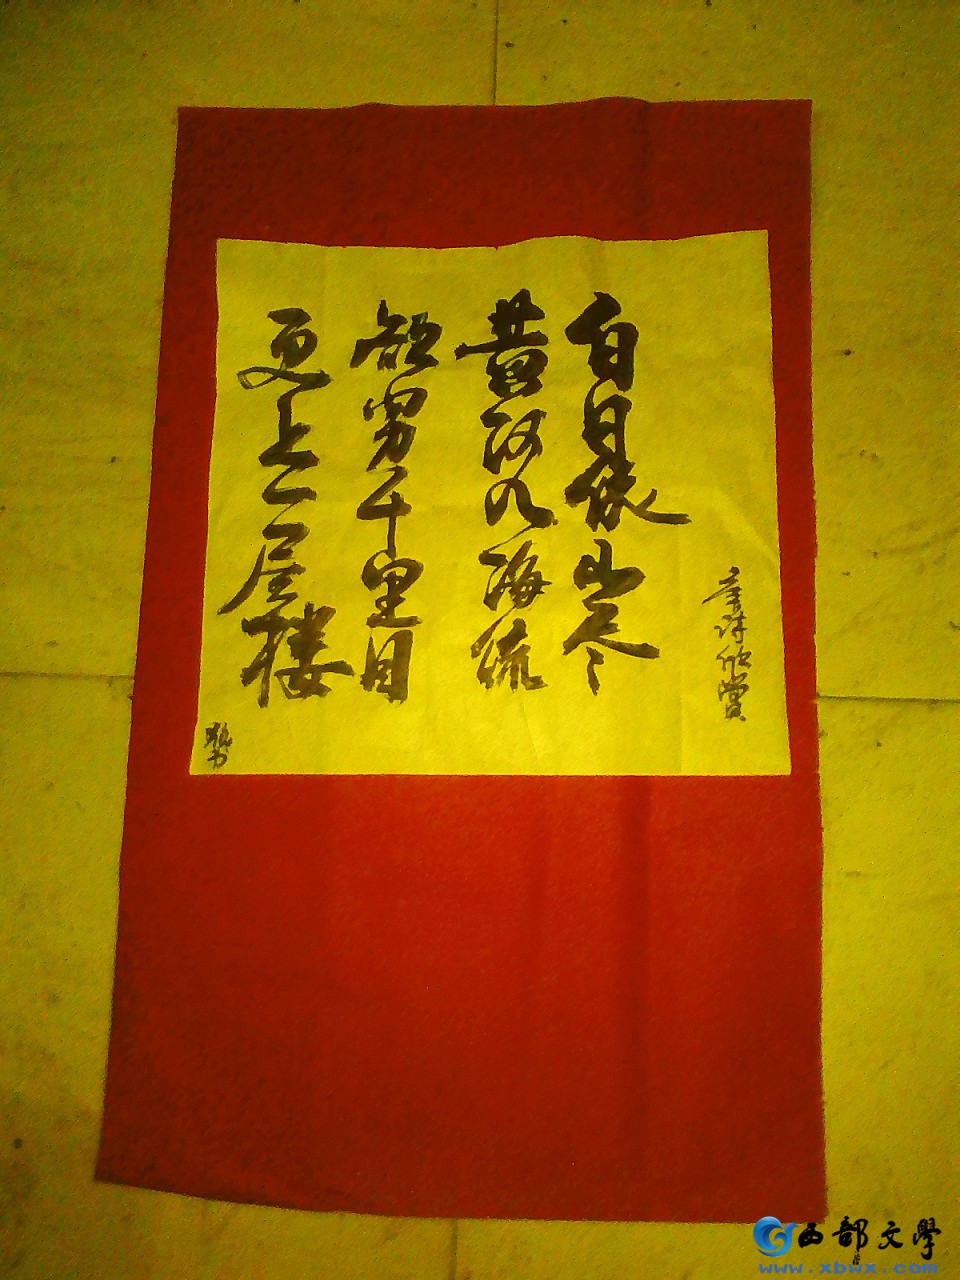 唐诗欣赏
白日依山尽
黄河入海流
欲穷千里目
更上一层楼
西部文學
www.xbwx.com